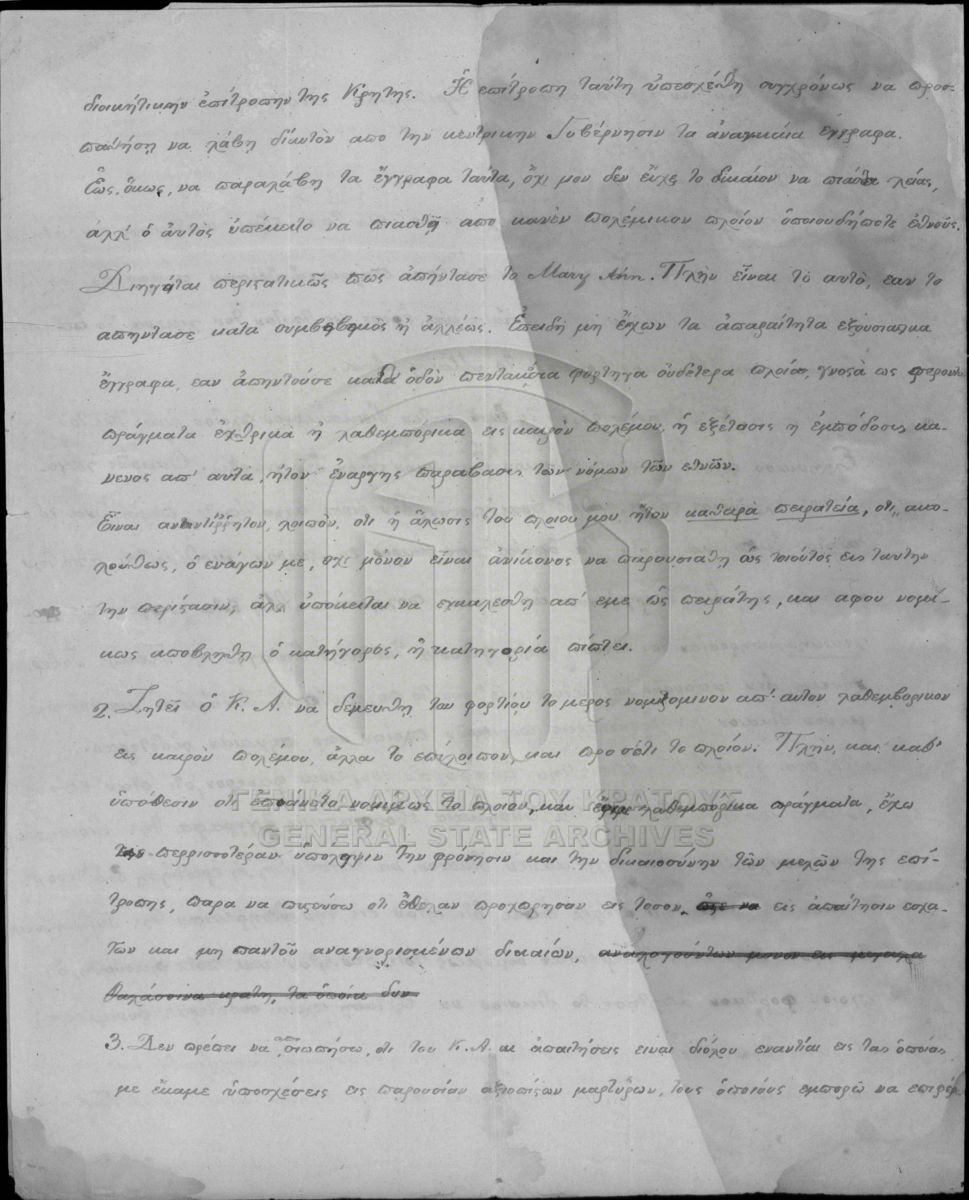 διοικήτικην ἐπίτροπην της Κρήτης. Ἡ επίτροπη ταύτη ὑπεσχέθη συγχρόνως να προσ-
παθήση να λάβη δἰαυτὸν απο την κεντρικην Γυβέρνησιν τα ἀναγκαία έγγραφα.
Ἕως, ὅμως, να παραλάβη τα ἔγγραφα ταύτα, ὄχι μον δεν εἴχε το δικαίον να πιάση λείας,
ἀλλ' ὁ ἀυτὸς ὑπέκειτο να πιασθῆ απο κανὲν πολέμικον πλοίον ὁποιουδήποτε έθνούς.
Διηγείται περιςατικῶς πῶς ἀπήντασε το Mary Ann. Πλὴν εἶναι τὸ αυτὸ, εαν το
απηντασε κατα συμβεβηκὸς ἢ ἀλλέως. Ἐπειδὴ μὴ ἔχων τα ἀπαραίτητα εξουσιαςικα
ἔγγραφα, εαν ἀπηντούσε καθ' ὁδὸν πεντακόσια φόρτηγα ουδέτερα πλοία, γνοςὰ ως φερον
πράγματα ἐχθρικὰ ἢ λαθεμπόρικα εις καιρὸν πολέμου, ἡ εξέτασις ἢ ἐμπόδοσις κα-
νενος απ' αυτα, ήτον ἐναργης παραβασις των νόμων τῶν εθνῶν.
Εἶναι αναντίρρητον, λοιπὸν, οτι ἡ ἅλωσις του πλοιου μου ἦτον καθαρὰ πειρατεία, οτι, ακο-
λούθως, ὁ ενάγων με, οχι μόνον είναι ἀνίκανος να παρουσιαθη ὡς τοιούτος εις ταυτην
την περίςασιν, ἀλλ ὑπόκειται να εγκαλεσθη απ' εμε ὡς πειράτης, και αφου νομι-
κως αποβληθη ὁ κατήγορος, ἡ κατηγορία πίπτει.
2. Ζητεῖ ὁ Κ. Α. να δεμευθη του φορτίου το μερος νομιζομινον απ' αυτον λαθεμβορικον
εις καιρὸν πολέμου, ἀλλα το επίλοιπον, και προσέτι το πλοίον. Πλὴν, και καθ'
ὑπόθεσιν οτι επιανετο νομιμως το πλοιον, και έφερε λαθεμπόρικα πράγματα, ἔχω
περρισσοτέραν ὑποληψιν την φρόνησιν και την δικαιοσύνην τῶν μελῶν της επί-
τροπης, παρα να πιςεύσω οτι ἤθελαν προχωρησαν εις τοσον, ὥςε να εἰς ἀπαίτησιν εσχα-
των και μη παντοῦ αναγνορισμένων δικαίων, αναλογούντων μονον εις μεγαλα
θαλάσσινα κρατη, τα ὁποία δυν
3. Δεν πρέπει να σιωπήσω, οτι του Κ. Α. αι ἀπαιτήσεις ειναι διόλου εναντίαι εις τας ὁποίας
με ἔκαμε ὑποσχέσεις εις παρουσίαν αξιοπίςων μαρτύρων, τους ὁποιούς εμπορῶ να επιφέρ
ΓΕΝΙΚΑ ΑΡΧΕΙΑ ΤΟΥ ΚΡΑΤΟΥΣ
GENERAL STATE ARCHIVES